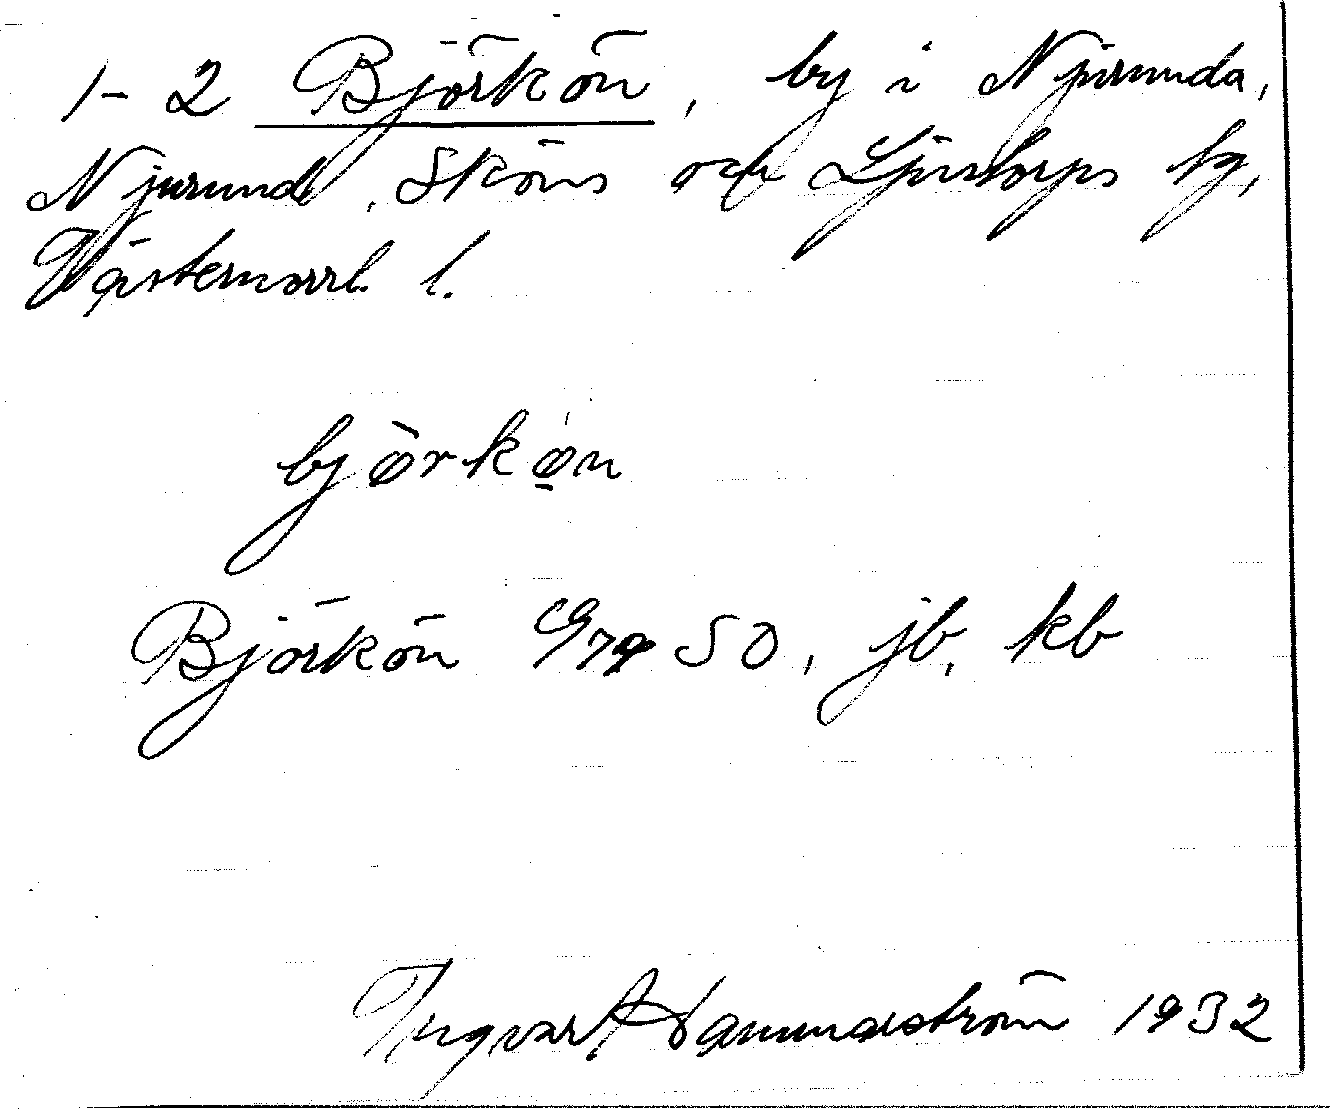 1-2 Björkön, by i Njurunda,
Njurund., Sköns och Ljustorps tg,
Västernorrl. l.
björkøn
Björkön 50, jb, kb
Ingvar Hammarström 1932